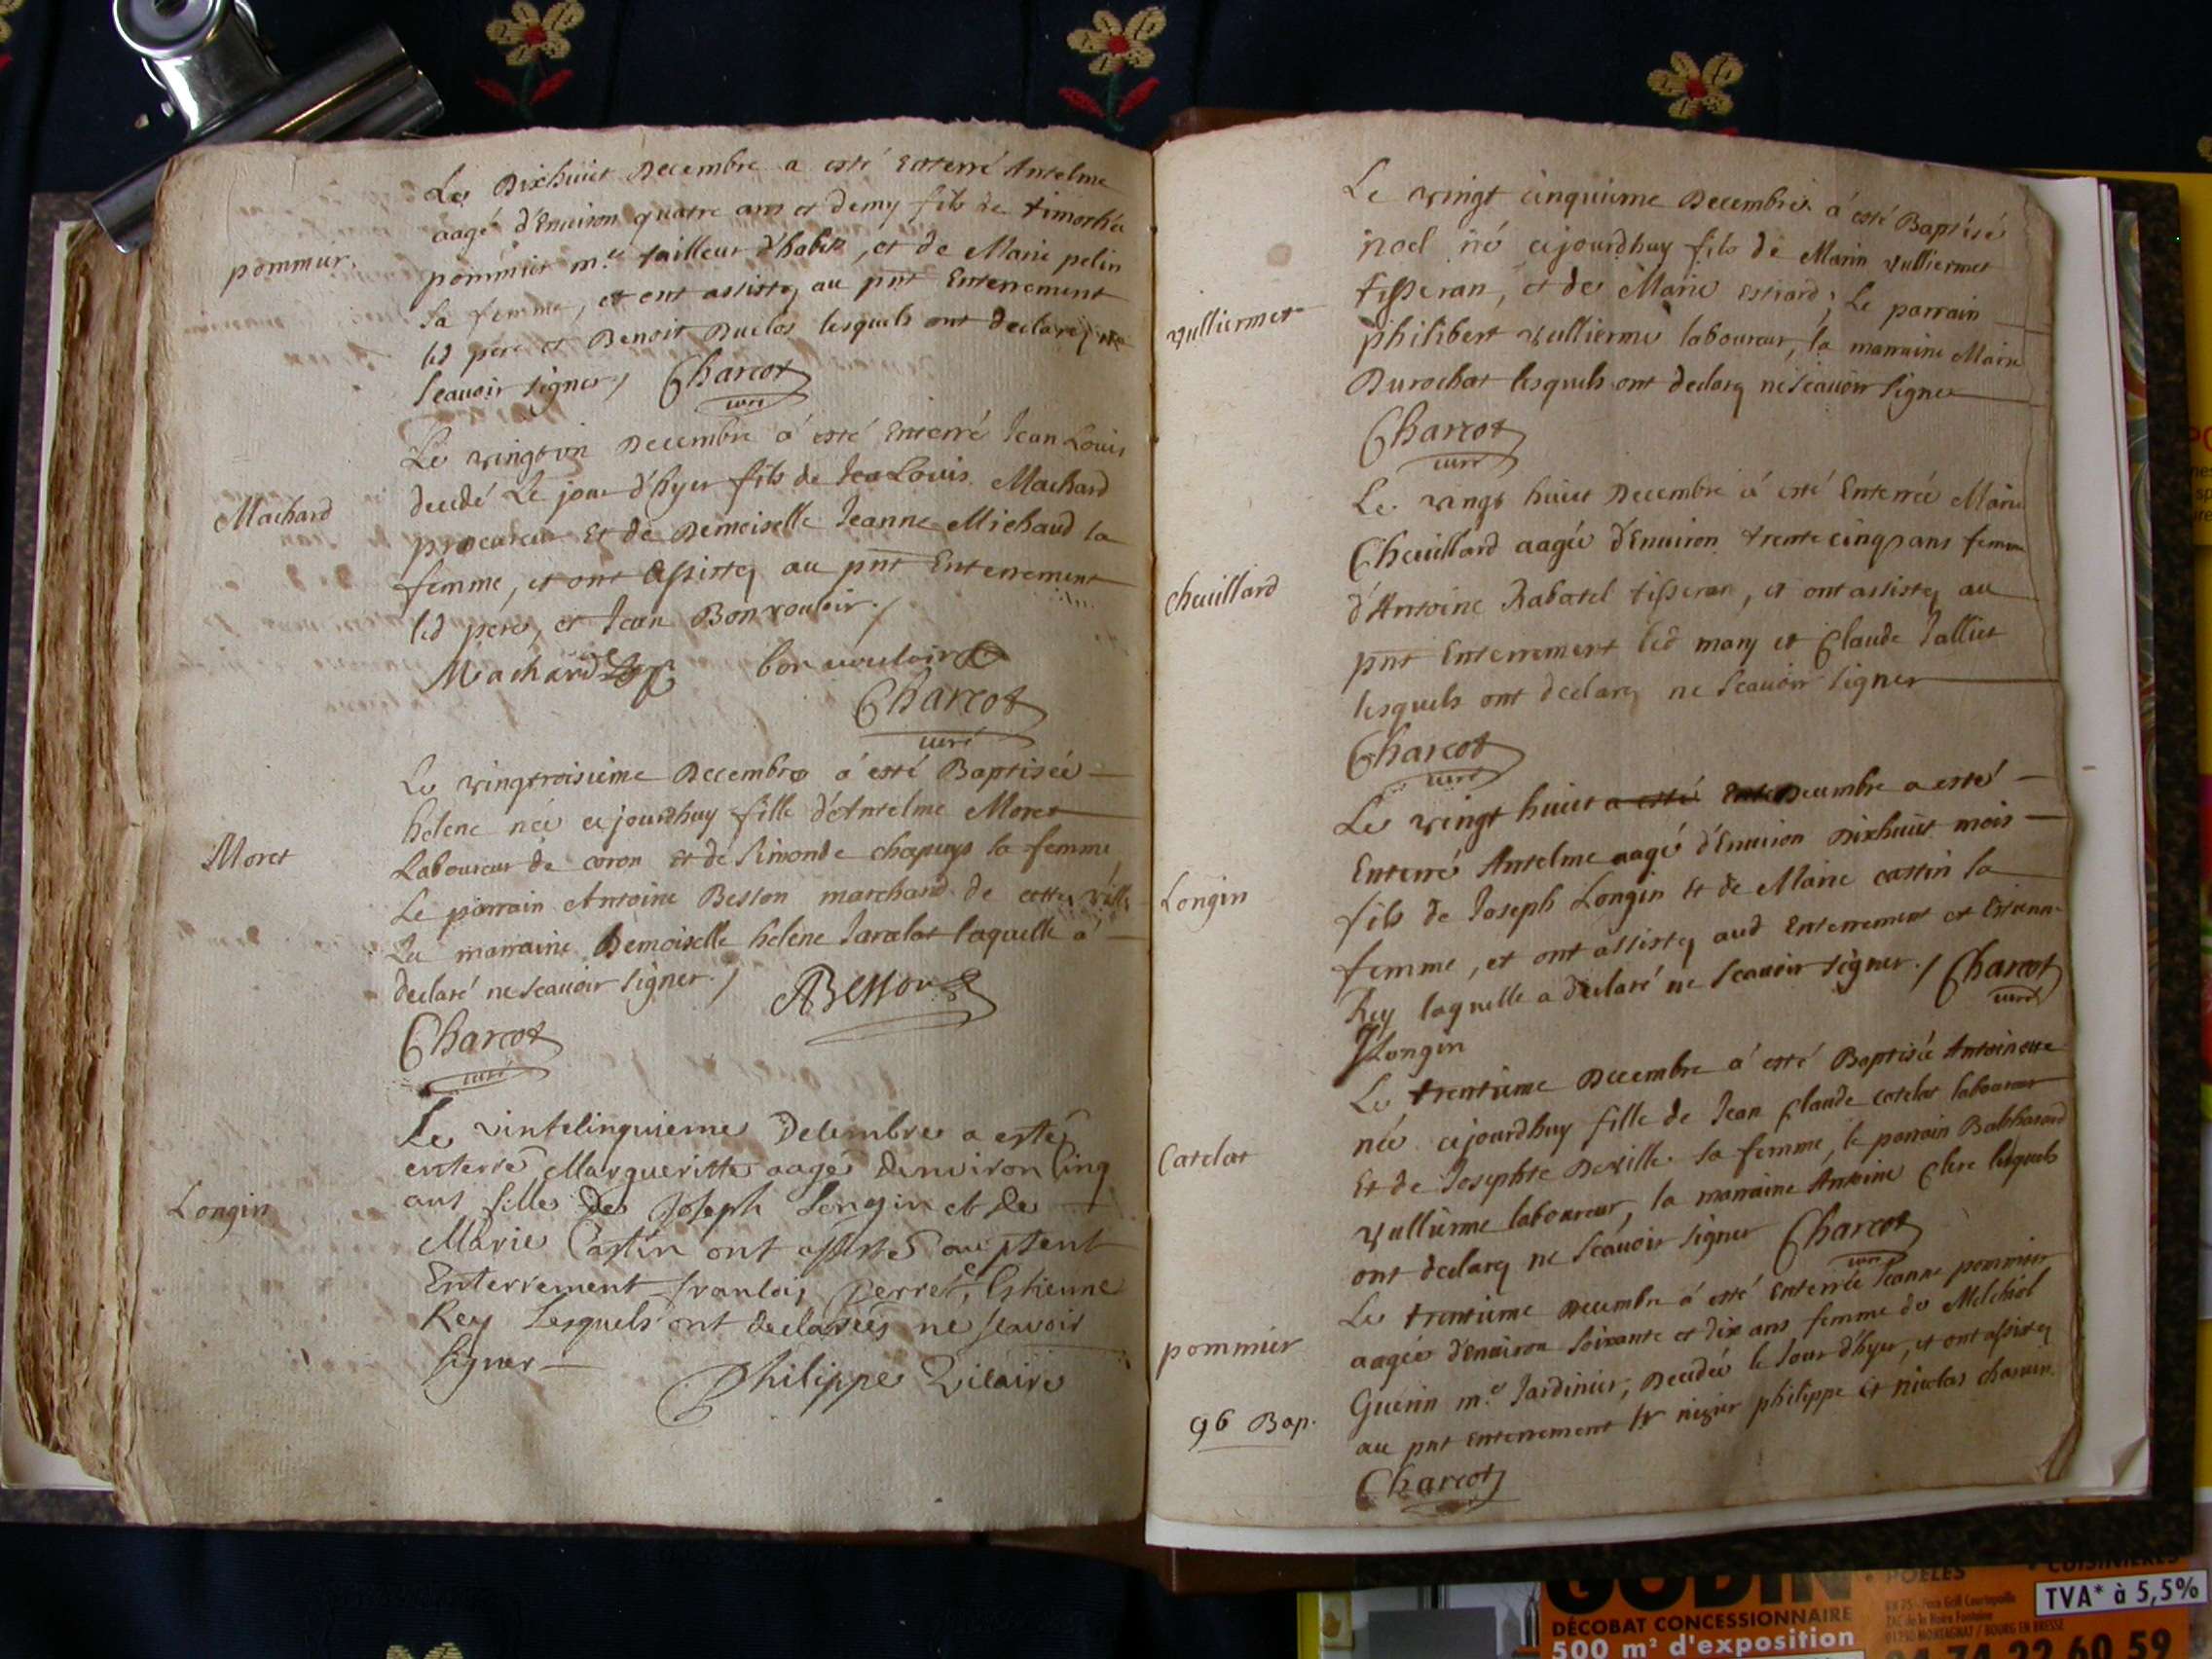 Le Dixhuict Decembre a esté Enterré Antelme
aagé d'Enuiron quatre ans et demy fils de timothée
pommier.
pommier m.e tailleur d'habits, et de Marie pelin
sa femme, et ont assisté au pnt Enterrement
led pere et Benoit Duclos lesquels ont declaré ne
scauoir signer / Charcot
curé
Le vingtvn Decembre a esté Enterré Jean Louis
decedé Le jour d'hyer fils de Jea Louis Machard
Machard
procureur Et de Demoiselle Jeanne Michaud sa
femme, et ont assisté au pnt Enterrement
led pere, et Jean Bonvouloir /
Machard bonuouloir
Charcot
curé
Le vingtroisieme Decembre a esté Baptisée
helene née cejourdhuy fille d'Antelme Moret
Moret
Laboureur de coron Et de Simonde chapuys sa femme
Le parrain Antoine Besson marchand de cette ville
La marraine Demoiselle helene Jarcelat laquelle a
declaré ne scauoir signer / ABesson
Charcot
curé
Le vintcinquieme Decembre a esté
enterré Margueritte aagé denviron Cinq
ans fille de Joseph Longin et de
Longin
Marie Castin ont assisté au psent
Enterrement francois perret, Estienne
Rey Lesquels ont declarés ne scavoir
signer
Philippe Vicaire
Le vingt cinquieme Decembre a esté Baptisé
noel né cejourdhuy fils de Marin vulliermet
vulliermet
tisseran, et de Marie Estiard; Le parrain
philibert vullierme laboureur, la marraine Marie
Durochat lesquels ont declaré ne scauoir signer
Charcot
curé
Le vingt huict Decembre a esté Enterrée Marie
Cheuillard aagée d'Enuiron trente cinq ans femme
cheuillard
d'Antoine Rabatel tisseran, et ont assisté au
pnt Enterrement led mary et Claude Jallier
lesquels ont declaré ne scauoir signer
Charcot
curé
Le vingt huict a esté Ente Decembre a esté
Enterré Antelme aagé d'Enuiron Dixhuict mois
Longin
fils de Joseph Longin Et de Marie castin sa
femme, et ont assisté aud Enterrement et Estienne
Rey laquelle a declaré ne scauoir signer. / Charcot
curé
J Longin
Le trentieme Decembre a esté Baptisée Antoinette
née cejourdhuy fille de Jean Claude catelat laboureur
Catelat
Et de Josephte Deville sa femme, le parrain Balthazard
vullierme laboureur, la marraine Antoine Clerc lesquels
ont declaré ne scauoir signer Charcot
curé
Le trentieme Decembre a esté Enterrée Jeanne pommier
pommier
aagée d'enuiron soixante et dix ans femme de Melchiol
Guerin m.e Jardinier, Decedée le Jour d'hyer, et ont assisté
96 Bap.
au pnt enterrement sr nizier philippe Et nicolas
Charcot
GODIN
POELES
CUISINIÈRES
TVA* à 5,5%
DÉCOBAT CONCESSIONNAIRE
500 m² d'exposition
01250 MONTAGNAT / BOURG EN BRESSE
04 74 22 60 59